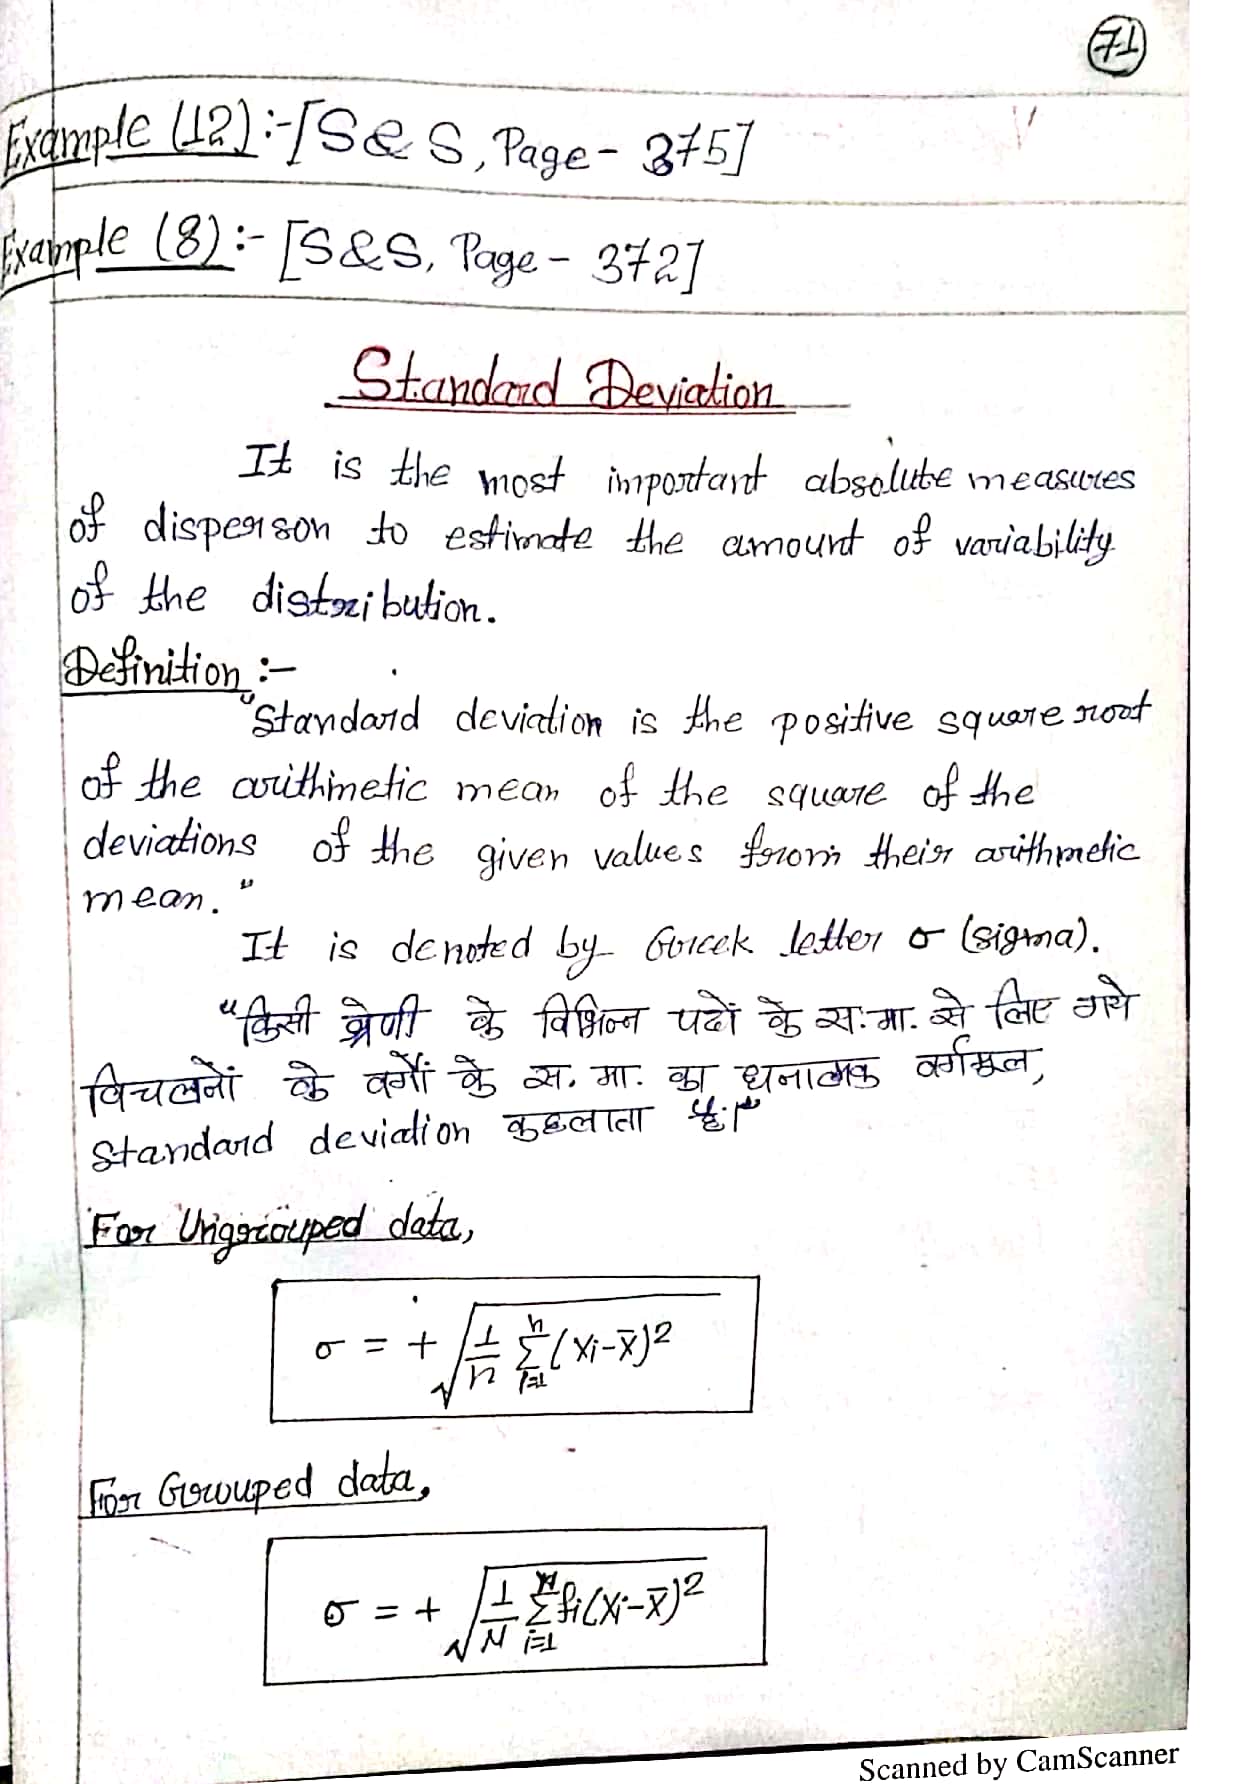 71
Example (12):-[S&S, Page - 375]
Example (8):- [S&S, Page - 372]
Standard Deviation
It is the most important absolute measures
of disperson to estimate the amount of variability
of the distribution.
Definition :-
"Standard deviation is the positive square root
of the arithmetic mean of the square of the
deviations of the given values from their arithmetic
mean."
It is denoted by Greek letter σ (sigma).
"किसी श्रेणी के विभिन्न पदों के स.मा. से लिए गये
विचलनों के वर्गों के स. मा. का धनात्मक वर्गमूल,
Standard deviation कहलाता है।"
For Ungrouped data,
σ = + √(1/n Σ_{i=1}^{n} (xi-x̄)²)
For Grouped data,
σ = + √(1/N Σ_{i=1}^{n} fi(xi-x̄)²)
Scanned by CamScanner